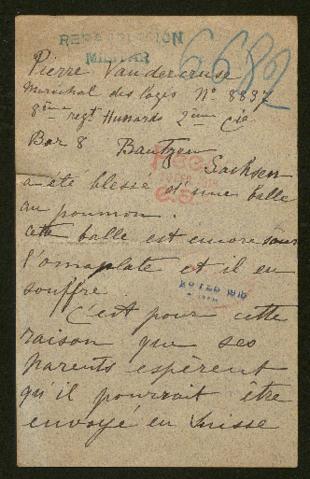 REPRESENTACION
MILITAR
6682
Pierre Vandercruse
Maréchal des Logis N° 8837
8ème regt Hussards 2ème Cie
Bar 8 Bautzen
Sachsen
a été blessé d'une balle
au poumon.
cette balle est encore sous
l'omoplate et il en
souffre
C'est pour cette
raison que ses
parents espèrent
qu'il pourrait être
envoyé en Suisse